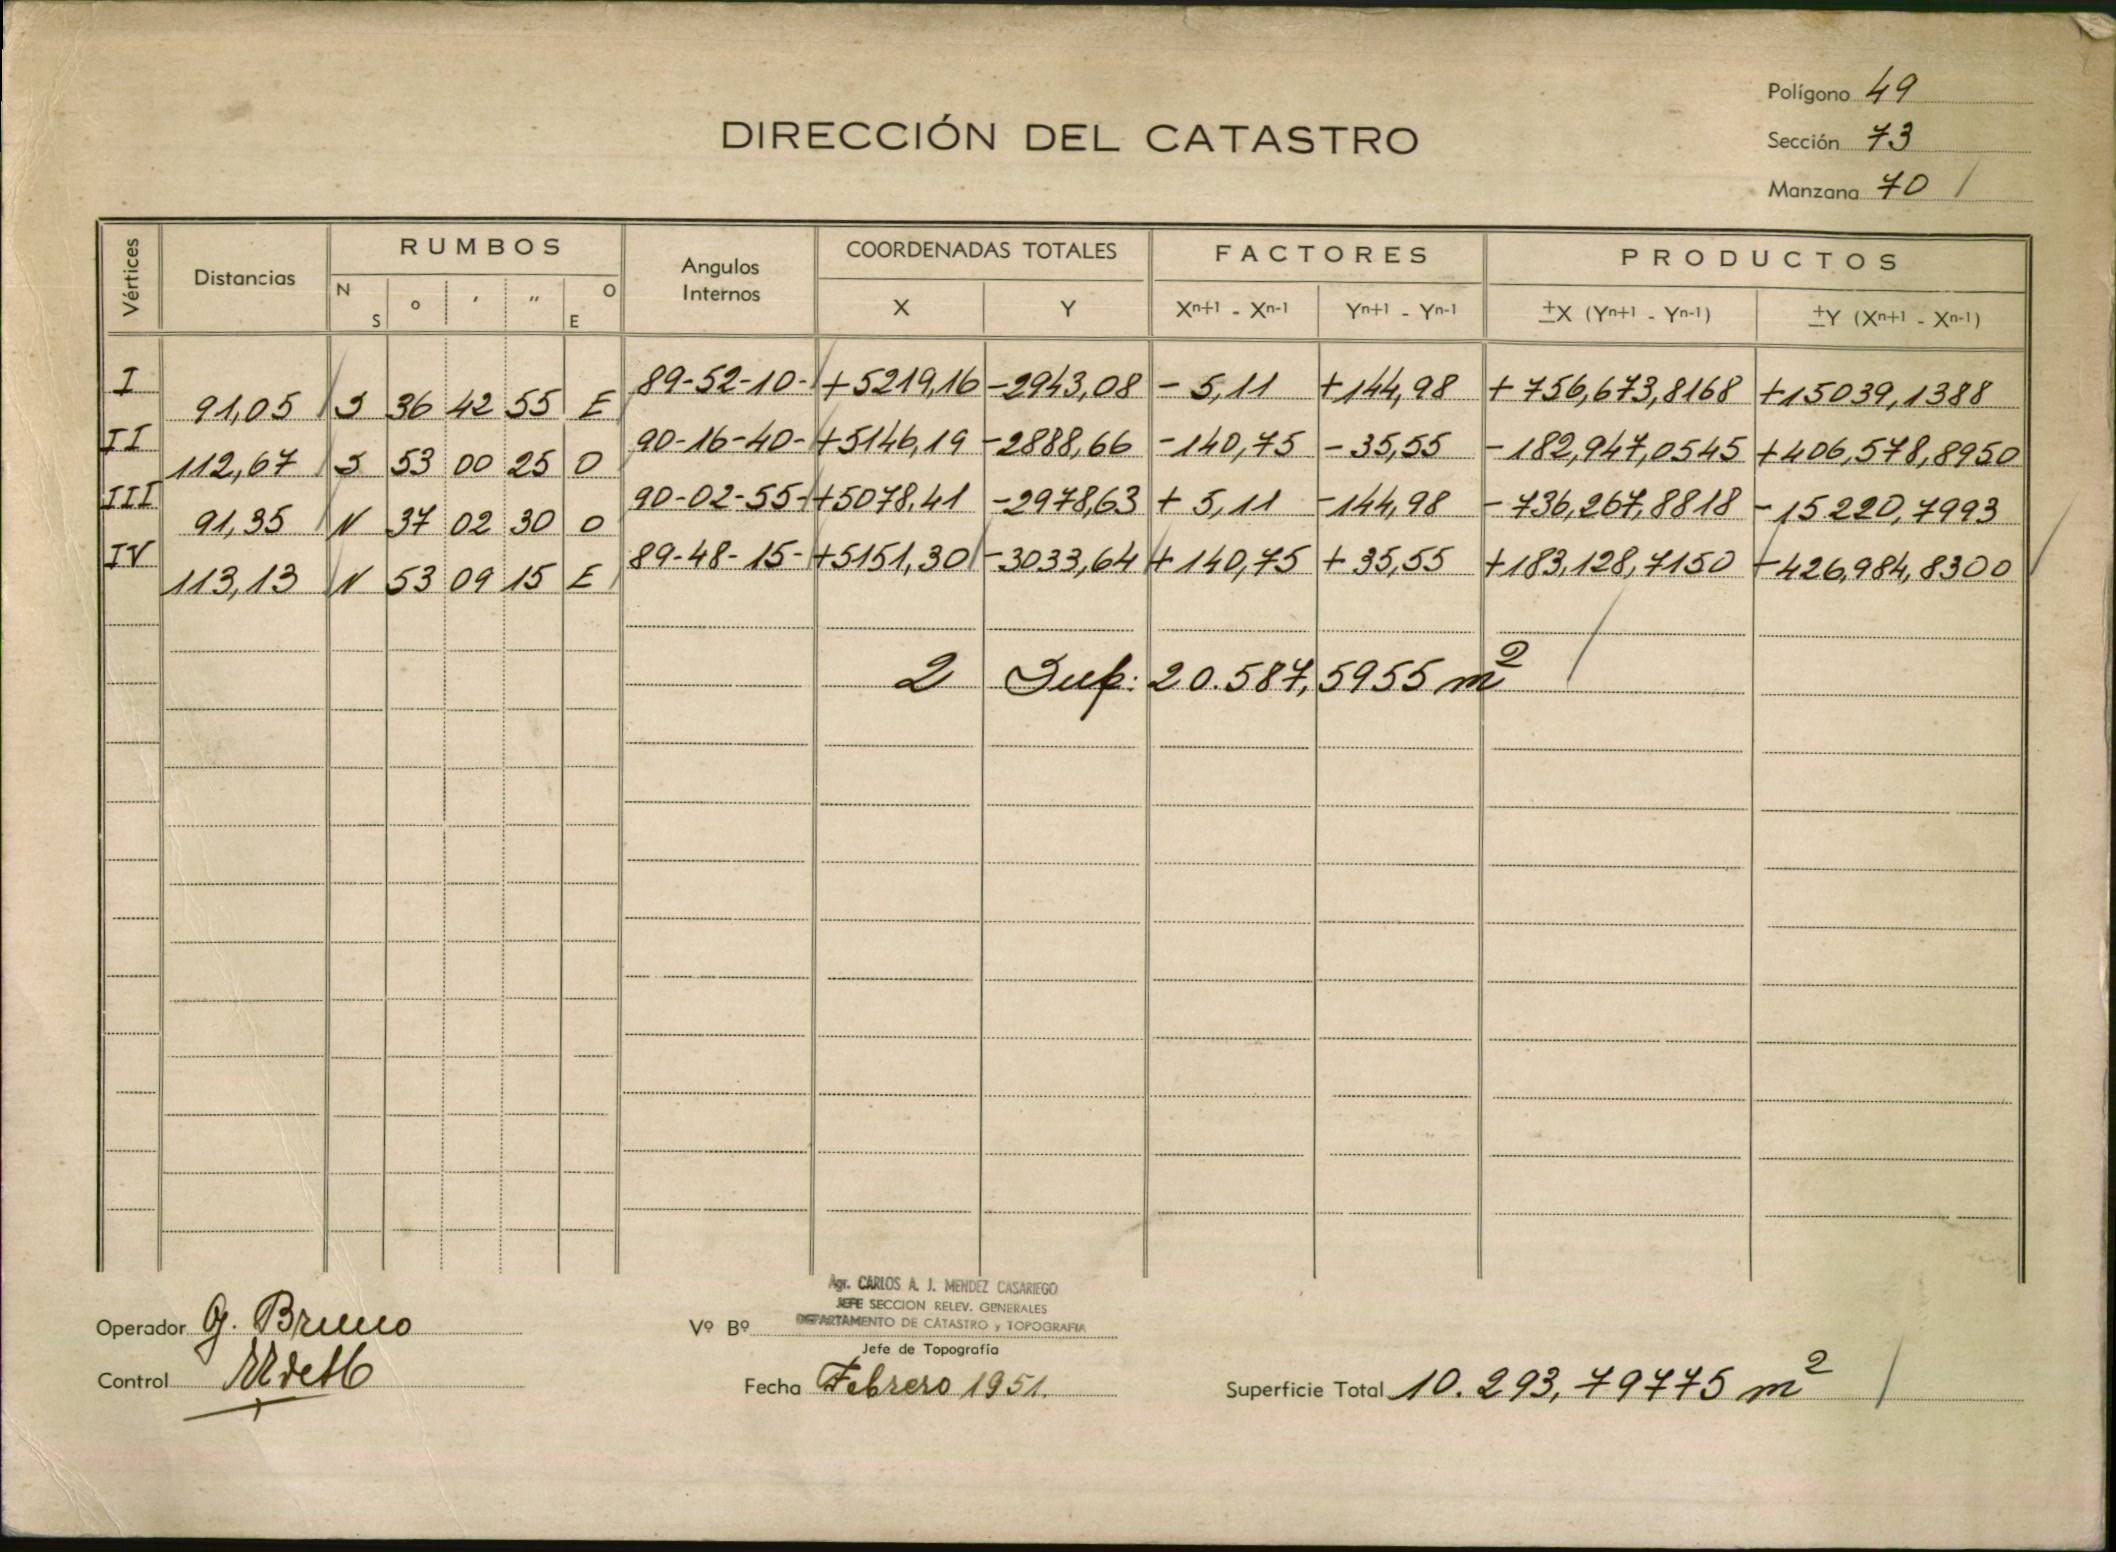 Polígono 49
DIRECCIÓN DEL CATASTRO
Sección 73
Manzana 70 /
Vértices Distancias RUMBOS Angulos Internos COORDENADAS TOTALES FACTORES PRODUCTOS
N S o ' " O E X Y Xn+1 - Xn-1 Yn+1 - Yn-1 ±X (Yn+1 - Yn-1) ±Y (Xn+1 - Xn-1)
I 89-52-10- +5219,16 -2943,08 - 5,11 +144,98 + 756,673,8168 +15039,1388
91,05 S 36 42 55 E
II 90-16-40- +5146,19 -2888,66 -140,75 - 35,55 - 182,947,0545 +406,578,8950
112,67 S 53 00 25 O
III 90-02-55- +5078,41 -2978,63 + 5,11 -144,98 - 736,267,8818 -15220,7993
91,35 N 37 02 30 O
IV 89-48-15- +5151,30 -3033,64 + 140,75 + 35,55 +183,128,7150 -426,984,8300
113,13 N 53 09 15 E
2 Sup: 20.587,5955 m²
Agr. CARLOS A. J. MENDEZ CASARIEGO
JEFE SECCION RELEV. GENERALES
DEPARTAMENTO DE CATASTRO y TOPOGRAFIA
Operador G. Bruno Vº Bº
Jefe de Topografía
Control Fecha Febrero 1951. Superficie Total 10.293,79775 m²